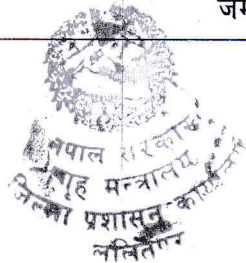 जम
नेपाल सरकार
गृह मन्त्रालय
जिल्ला प्रशासन कार्यालय
ललितपुर